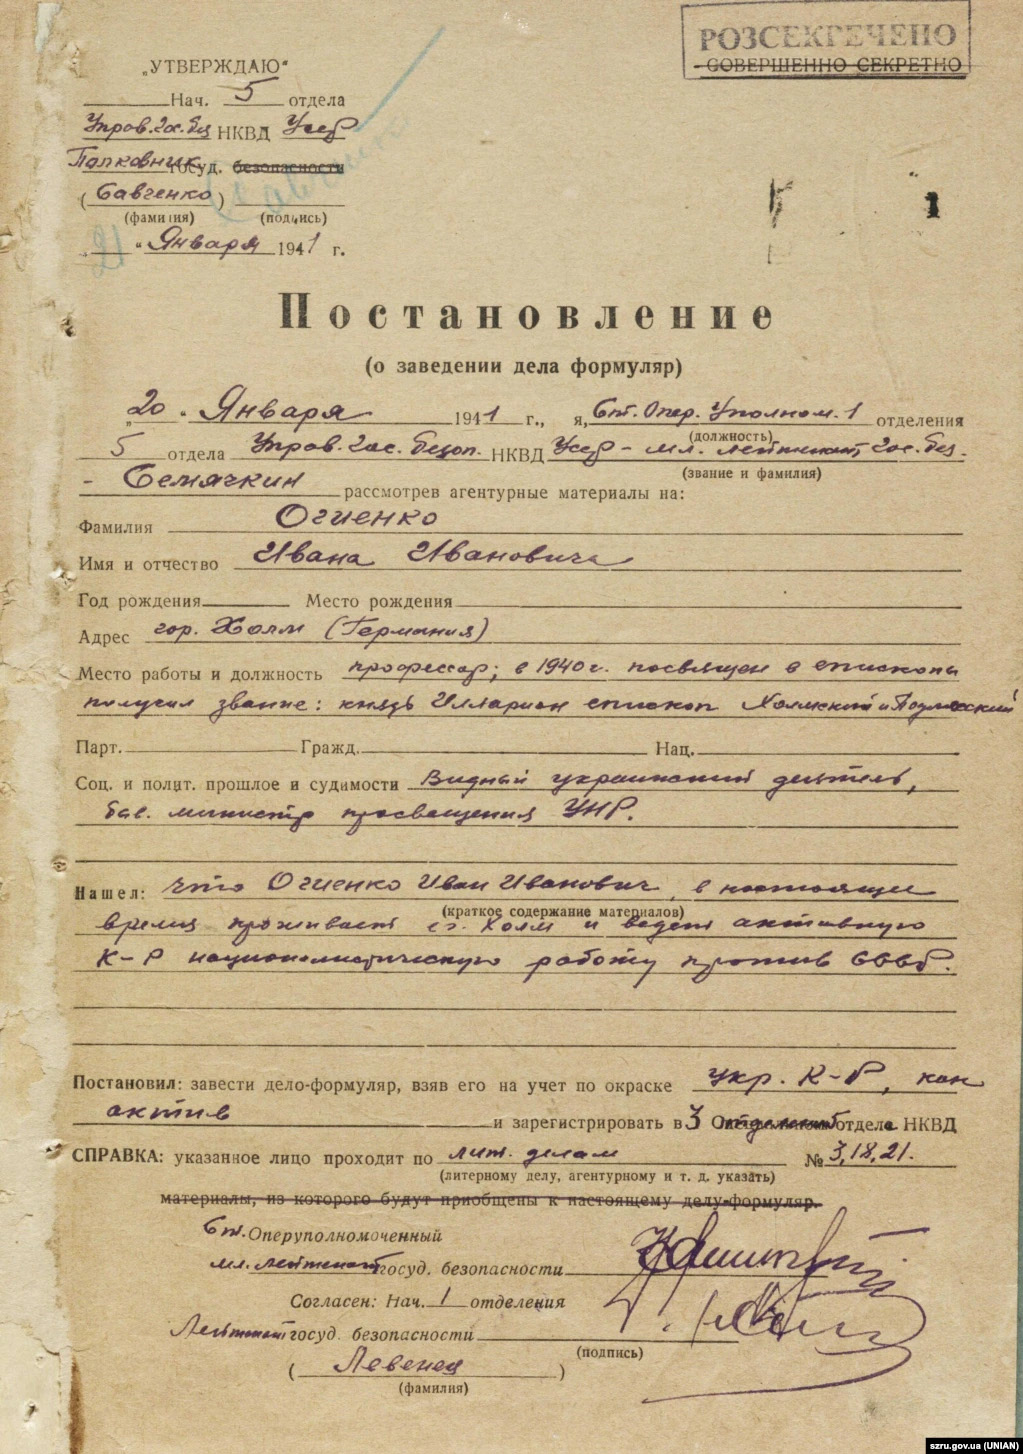 РОЗСЕКРЕЧЕНО
СОВЕРШЕННО СЕКРЕТНО
„УТВЕРЖДАЮ“
Нач. 5 отдела
Упров. Гос. Без НКВД Усср
Полковник госуд. безопасности
(Савченко)
(фамилия) (подпись)
„21“ Января 1941 г.
1
Постановление
(о заведении дела формуляр)
„20“ Января 1941 г., я, Ст. Опер. Уполном. 1 отделения
(должность)
5 отдела Упров. Гос. Безоп. НКВД Усср - мл. лейтенант Гос. без.
(звание и фамилия)
- Семячкин рассмотрев агентурные материалы на:
Фамилия Огиенко
Имя и отчество Ивана Ивановича
Год рождения Место рождения
Адрес гор. Холм (Германия)
Место работы и должность профессор; в 1940 г. посвящен в епископы
получил звание: князь Илларион епископ Холмский и Подляський
Парт. Гражд. Нац.
Соц. и полит. прошлое и судимости Видный украинский деятель,
быв. министр просвещения УНР.
Нашел: что Огиенко Иван Иванович, в настоящее
(краткое содержание материалов)
время проживает в г. Холм и ведет активную
К-Р националистическую работу против СССР.
Постановил: завести дело-формуляр, взяв его на учет по окраске укр. К-Р, как
актив и зарегистрировать в 3 отделе НКВД
СПРАВКА: указанное лицо проходит по лит. делам № 3,18,21.
(литерному делу, агентурному и т. д. указать)
материалы, из которого будут приобщены к настоящему делу-формуляр.
Ст. Оперуполномоченный
мл. лейтенант госуд. безопасности
Согласен: Нач. 1 отделения
Лейтенант госуд. безопасности
(подпись)
(Левенец)
(фамилия)
szru.gov.ua (UNIAN)